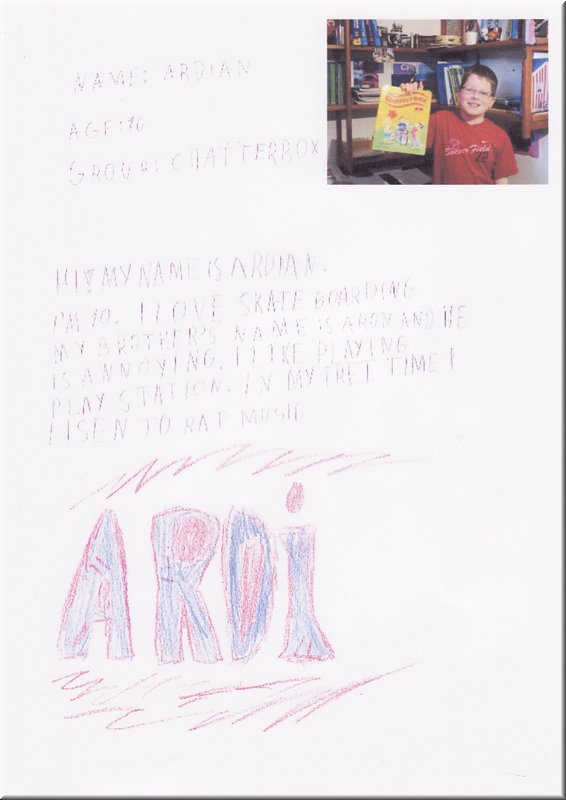 NAME: ARDIAN
AGE: 10
GROUP: CHATTERBOX
Chatterbox
Soccer Field
12
HI! MY NAME IS ARDIAN.
I'M 10. I LOVE SKATE BOARDING
MY BROTHER'S NAME IS ARON AND HE
IS ANNOYING. I LIKE PLAYING
PLAY STATION. IN MY FREE TIME I
LISEN TO RAP MUSIC
ARDi